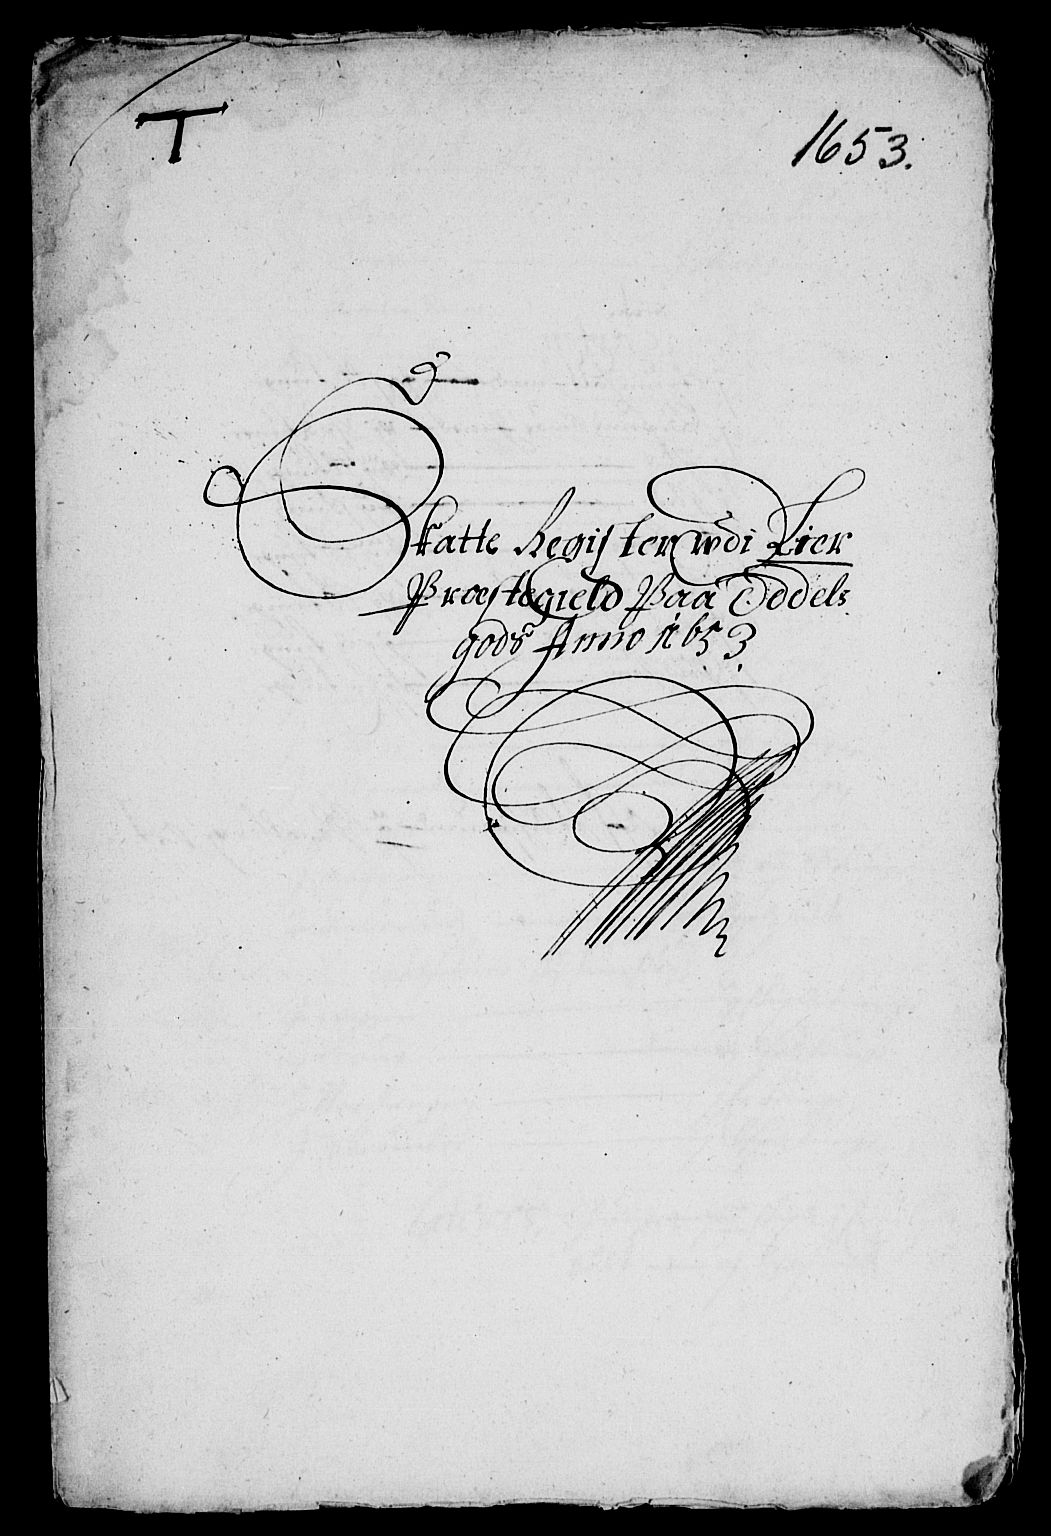 T
1653.
Skatte Register wdi Lier
Præstegield Paa Oddels
gods Anno 1653.